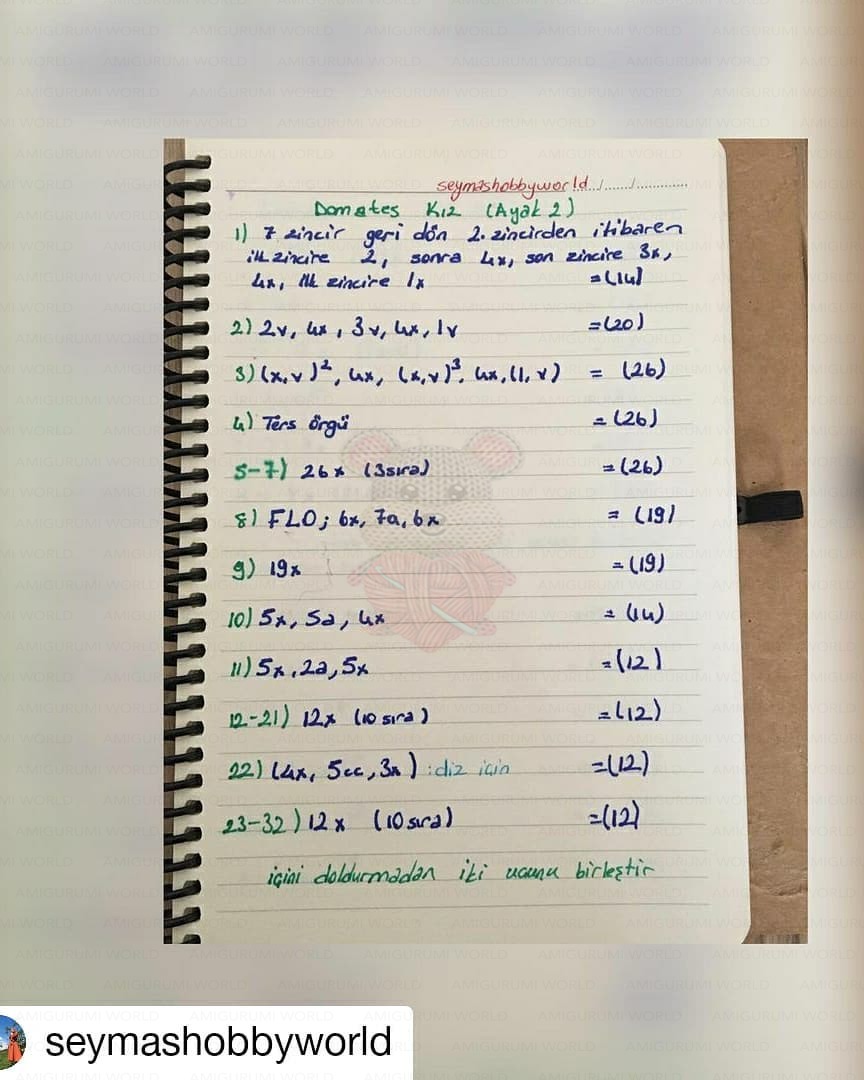 seymashobbyworld.../....../.............
Domates Kız (Ayak 2)
1) 7 zincir geri dön 2. zincirden itibaren
ilk zincire 2, sonra 4x, son zincire 3x,
4x, ilk zincire 1x =(14)
2) 2v, 4x, 3v, 4x, 1v =(20)
3) (x,v)², 4x, (x,v)³, 4x, (1, v) = (26)
4) Ters örgü = (26)
5-7) 26x (3sıra) =(26)
8) FLO; 6x, 7a, 6x = (19)
9) 19x =(19)
10) 5x, 5a, 4x = (14)
11) 5x, 2a, 5x =(12)
12-21) 12x (10 sıra) =(12)
22) (4x, 5cc, 3x) : diz için =(12)
23-32) 12x (10 sıra) =(12)
içini doldurmadan iki ucunu birleştir
AMIGURUMI WORLD
seymashobbyworld